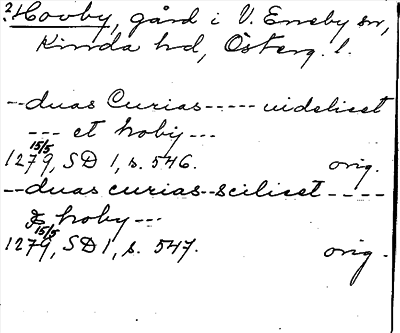 ? Hovby, gård i V. Eneby sn,
Kinda hd, Österg. l.
-- duas Curias ----- videliset
--- et hoby ---
15/5
1279, SD 1, s. 546. orig.
-- duas curias -- sciliset ----
& hoby ---
15/5
1279, SD 1, s. 547. orig.